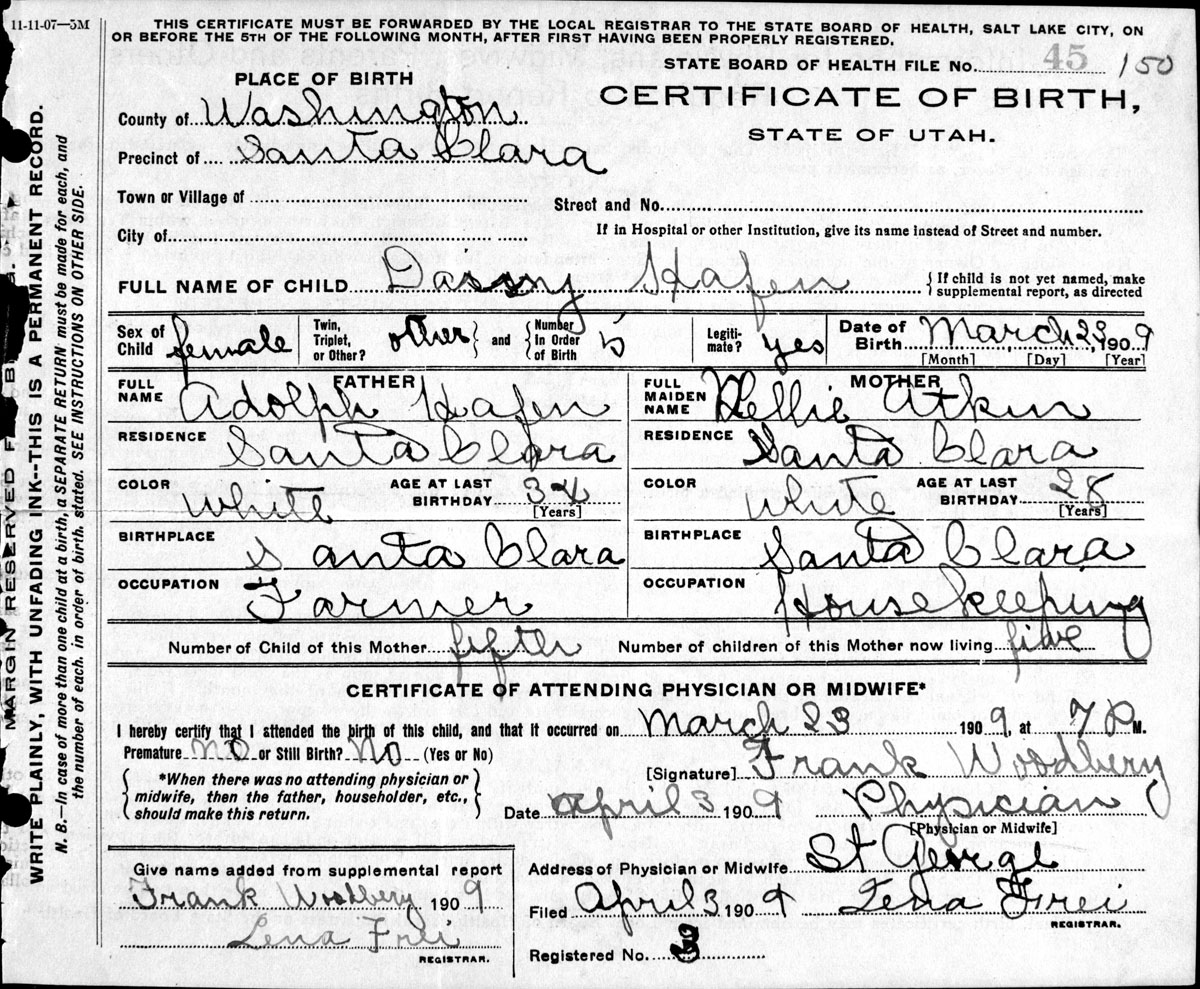 11-11-07—5M
THIS CERTIFICATE MUST BE FORWARDED BY THE LOCAL REGISTRAR TO THE STATE BOARD OF HEALTH, SALT LAKE CITY, ON
OR BEFORE THE 5TH OF THE FOLLOWING MONTH, AFTER FIRST HAVING BEEN PROPERLY REGISTERED.
STATE BOARD OF HEALTH FILE No. 45 150
PLACE OF BIRTH
CERTIFICATE OF BIRTH,
STATE OF UTAH.
County of Washington
Precinct of Santa Clara
Town or Village of
Street and No.
City of
If in Hospital or other Institution, give its name instead of Street and number.
FULL NAME OF CHILD Daissy Hafen { If child is not yet named, make
supplemental report, as directed
Sex of Child female
Twin, Triplet, or Other? other } and { Number In Order of Birth 5
Legitimate? yes
Date of Birth March 23, 1909
[Month] [Day] [Year]
FATHER
FULL NAME Adolph Hafen
MOTHER
FULL MAIDEN NAME Nellie Atkin
RESIDENCE Santa Clara
RESIDENCE Santa Clara
COLOR White AGE AT LAST BIRTHDAY 34 [Years]
COLOR White AGE AT LAST BIRTHDAY 28 [Years]
BIRTHPLACE Santa Clara
BIRTHPLACE Santa Clara
OCCUPATION Farmer
OCCUPATION Housekeeping
Number of Child of this Mother fifter Number of children of this Mother now living five
CERTIFICATE OF ATTENDING PHYSICIAN OR MIDWIFE*
I hereby certify that I attended the birth of this child, and that it occurred on March 23 1909, at 7 P M.
Premature No or Still Birth? No (Yes or No)
{ *When there was no attending physician or
midwife, then the father, householder, etc.,
should make this return. }
[Signature] Frank Woodbery
Date April 3 1909 Physician
[Physician or Midwife]
Address of Physician or Midwife St George
Give name added from supplemental report
Frank Woodbery 1909
Lena Frei
REGISTRAR.
Filed April 3 1909 Lena Frei
REGISTRAR.
Registered No.
MARGIN RESERVED
WRITE PLAINLY, WITH UNFADING INK--THIS IS A PERMANENT RECORD.
N. B.—In case of more than one child at a birth, a SEPARATE RETURN must be made for each, and
the number of each. in order of birth. stated. SEE INSTRUCTIONS ON OTHER SIDE.